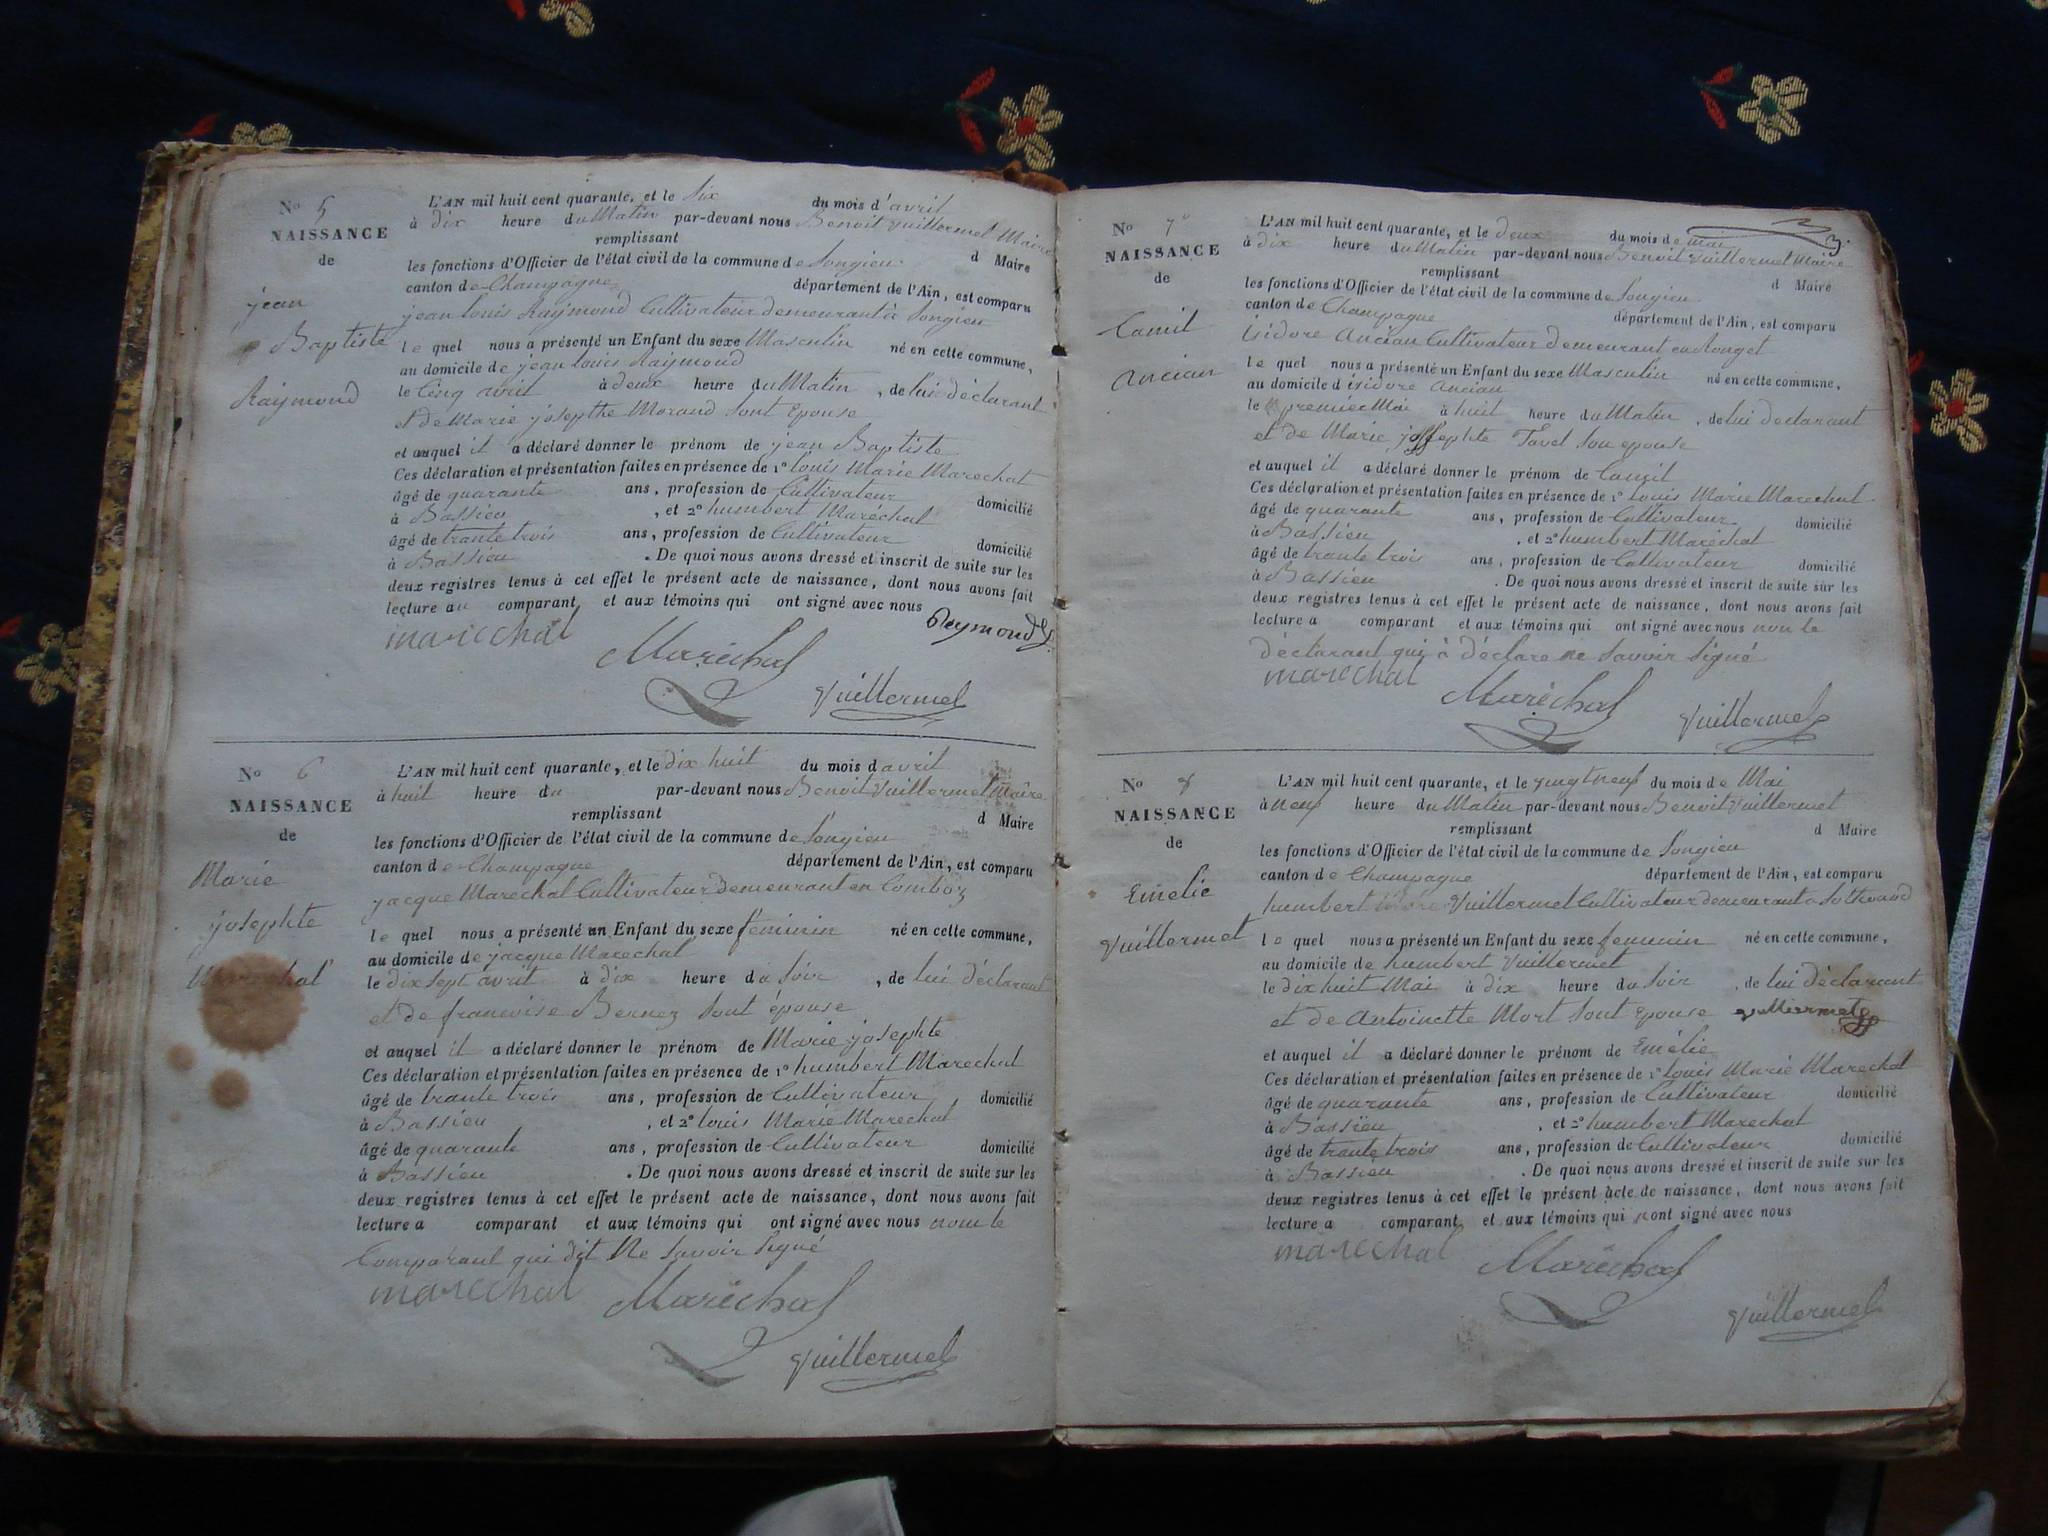 No 5
NAISSANCE
de
jean
Baptiste
Raymond
L'AN mil huit cent quarante, et le Six du mois d'avril
à dix heure du Matin par-devant nous Benoit Vuillermet Maire
remplissant d Maire
les fonctions d'Officier de l'état civil de la commune de Songieu
canton de Champagne département de l'Ain, est comparu
jean Louis Raymond Cultivateur demeurant à Songieu
le quel nous a présenté un Enfant du sexe Masculin né en cette commune,
au domicile de jean Louis Raymond
le Cinq avril à deux heure du Matin, de lui déclarant
et de Marie josepthe Morand Sont Epouse
et auquel il a déclaré donner le prénom de jean Baptiste
Ces déclaration et présentation faites en présence de 1º Louis Marie Marechal
âgé de quarante ans, profession de Cultivateur domicilié
à Bassieu, et 2º humbert Maréchal
âgé de trante trois ans, profession de Cultivateur domicilié
à Bassieu. De quoi nous avons dressé et inscrit de suite sur les
deux registres tenus à cet effet le présent acte de naissance, dont nous avons fait
lecture au comparant et aux témoins qui ont signé avec nous
Reymond
marechal Maréchal
Vuillermet
No 6
NAISSANCE
de
Marie
josephte
Marechal
L'AN mil huit cent quarante, et le dix huit du mois d avril
à huit heure du par-devant nous Benoit Vuillermet Maire
remplissant d Maire
les fonctions d'Officier de l'état civil de la commune de Songieu
canton de Champagne département de l'Ain, est comparu
jacque Marechal Cultivateur demeurant en
le quel nous a présenté un Enfant du sexe féminin né en cette commune,
au domicile de jacque Marechal
le dix sept avril à dix heure du Soir, de lui déclarant
et de francoise Bernez Sont épouse
et auquel il a déclaré donner le prénom de Marie josephte
Ces déclaration et présentation faites en présence de 1º humbert Marechal
âgé de trante trois ans, profession de Cultivateur domicilié
à Bassieu, et 2º Louis Marie Marechal
âgé de quarante ans, profession de Cultivateur domicilié
à Bassieu. De quoi nous avons dressé et inscrit de suite sur les
deux registres tenus à cet effet le présent acte de naissance, dont nous avons fait
lecture a comparant et aux témoins qui ont signé avec nous non le
Comparant qui dit Ne Savoir Signé
marechal Maréchal
Vuillermet
3.
No 7
NAISSANCE
de
Camil
Ancian
L'AN mil huit cent quarante, et le deux du mois de mai
à dix heure du Matin par-devant nous Benoit Vuillermet Maire
remplissant d Maire
les fonctions d'Officier de l'état civil de la commune de Songieu
canton de Champagne département de l'Ain, est comparu
isidore Ancian Cultivateur demeurant en
le quel nous a présenté un Enfant du sexe Masculin né en cette commune,
au domicile d isidore Ancian
le premier Mai à huit heure du Matin, de lui declarant
et de Marie josephte Tavel Son epouse
et auquel il a déclaré donner le prénom de Camil
Ces déclaration et présentation faites en présence de 1º Louis Marie Marechal
âgé de quarante ans, profession de Cultivateur domicilié
à Bassieu, et 2º humbert Maréchal
âgé de trante trois ans, profession de Cultivateur domicilié
à Bassieu. De quoi nous avons dressé et inscrit de suite sur les
deux registres tenus à cet effet le présent acte de naissance, dont nous avons fait
lecture a comparant et aux témoins qui ont signé avec nous non le
déclarant qui à déclare ne Savoir Signé
marechal Maréchal
Vuillermet
No 8
NAISSANCE
de
Emélie
Vuillermet
L'AN mil huit cent quarante, et le du mois de Mai
à neuf heure du Matin par-devant nous Benoit Vuillermet
remplissant d Maire
les fonctions d'Officier de l'état civil de la commune de Songieu
canton de Champagne département de l'Ain, est comparu
humbert Vuillermet Cultivateur demeurant a Sothonod
le quel nous a présenté un Enfant du sexe feminin né en cette commune,
au domicile de humbert Vuillermet
le dix huit Mai à dix heure du Soir, de lui déclarant
et de Antoinette Mort Sont Epouse Vulliermet
et auquel il a déclaré donner le prénom de Emélie
Ces déclaration et présentation faites en présence de 1º Louis Marie Marechal
âgé de quarante ans, profession de Cultivateur domicilié
à Bassieu, et 2º humbert Marechal
âgé de trante trois ans, profession de Cultivateur domicilié
à Bassieu. De quoi nous avons dressé et inscrit de suite sur les
deux registres tenus à cet effet le présent acte de naissance, dont nous avons fait
lecture a comparant et aux témoins qui ont signé avec nous
marechal Maréchal
Vuillermet